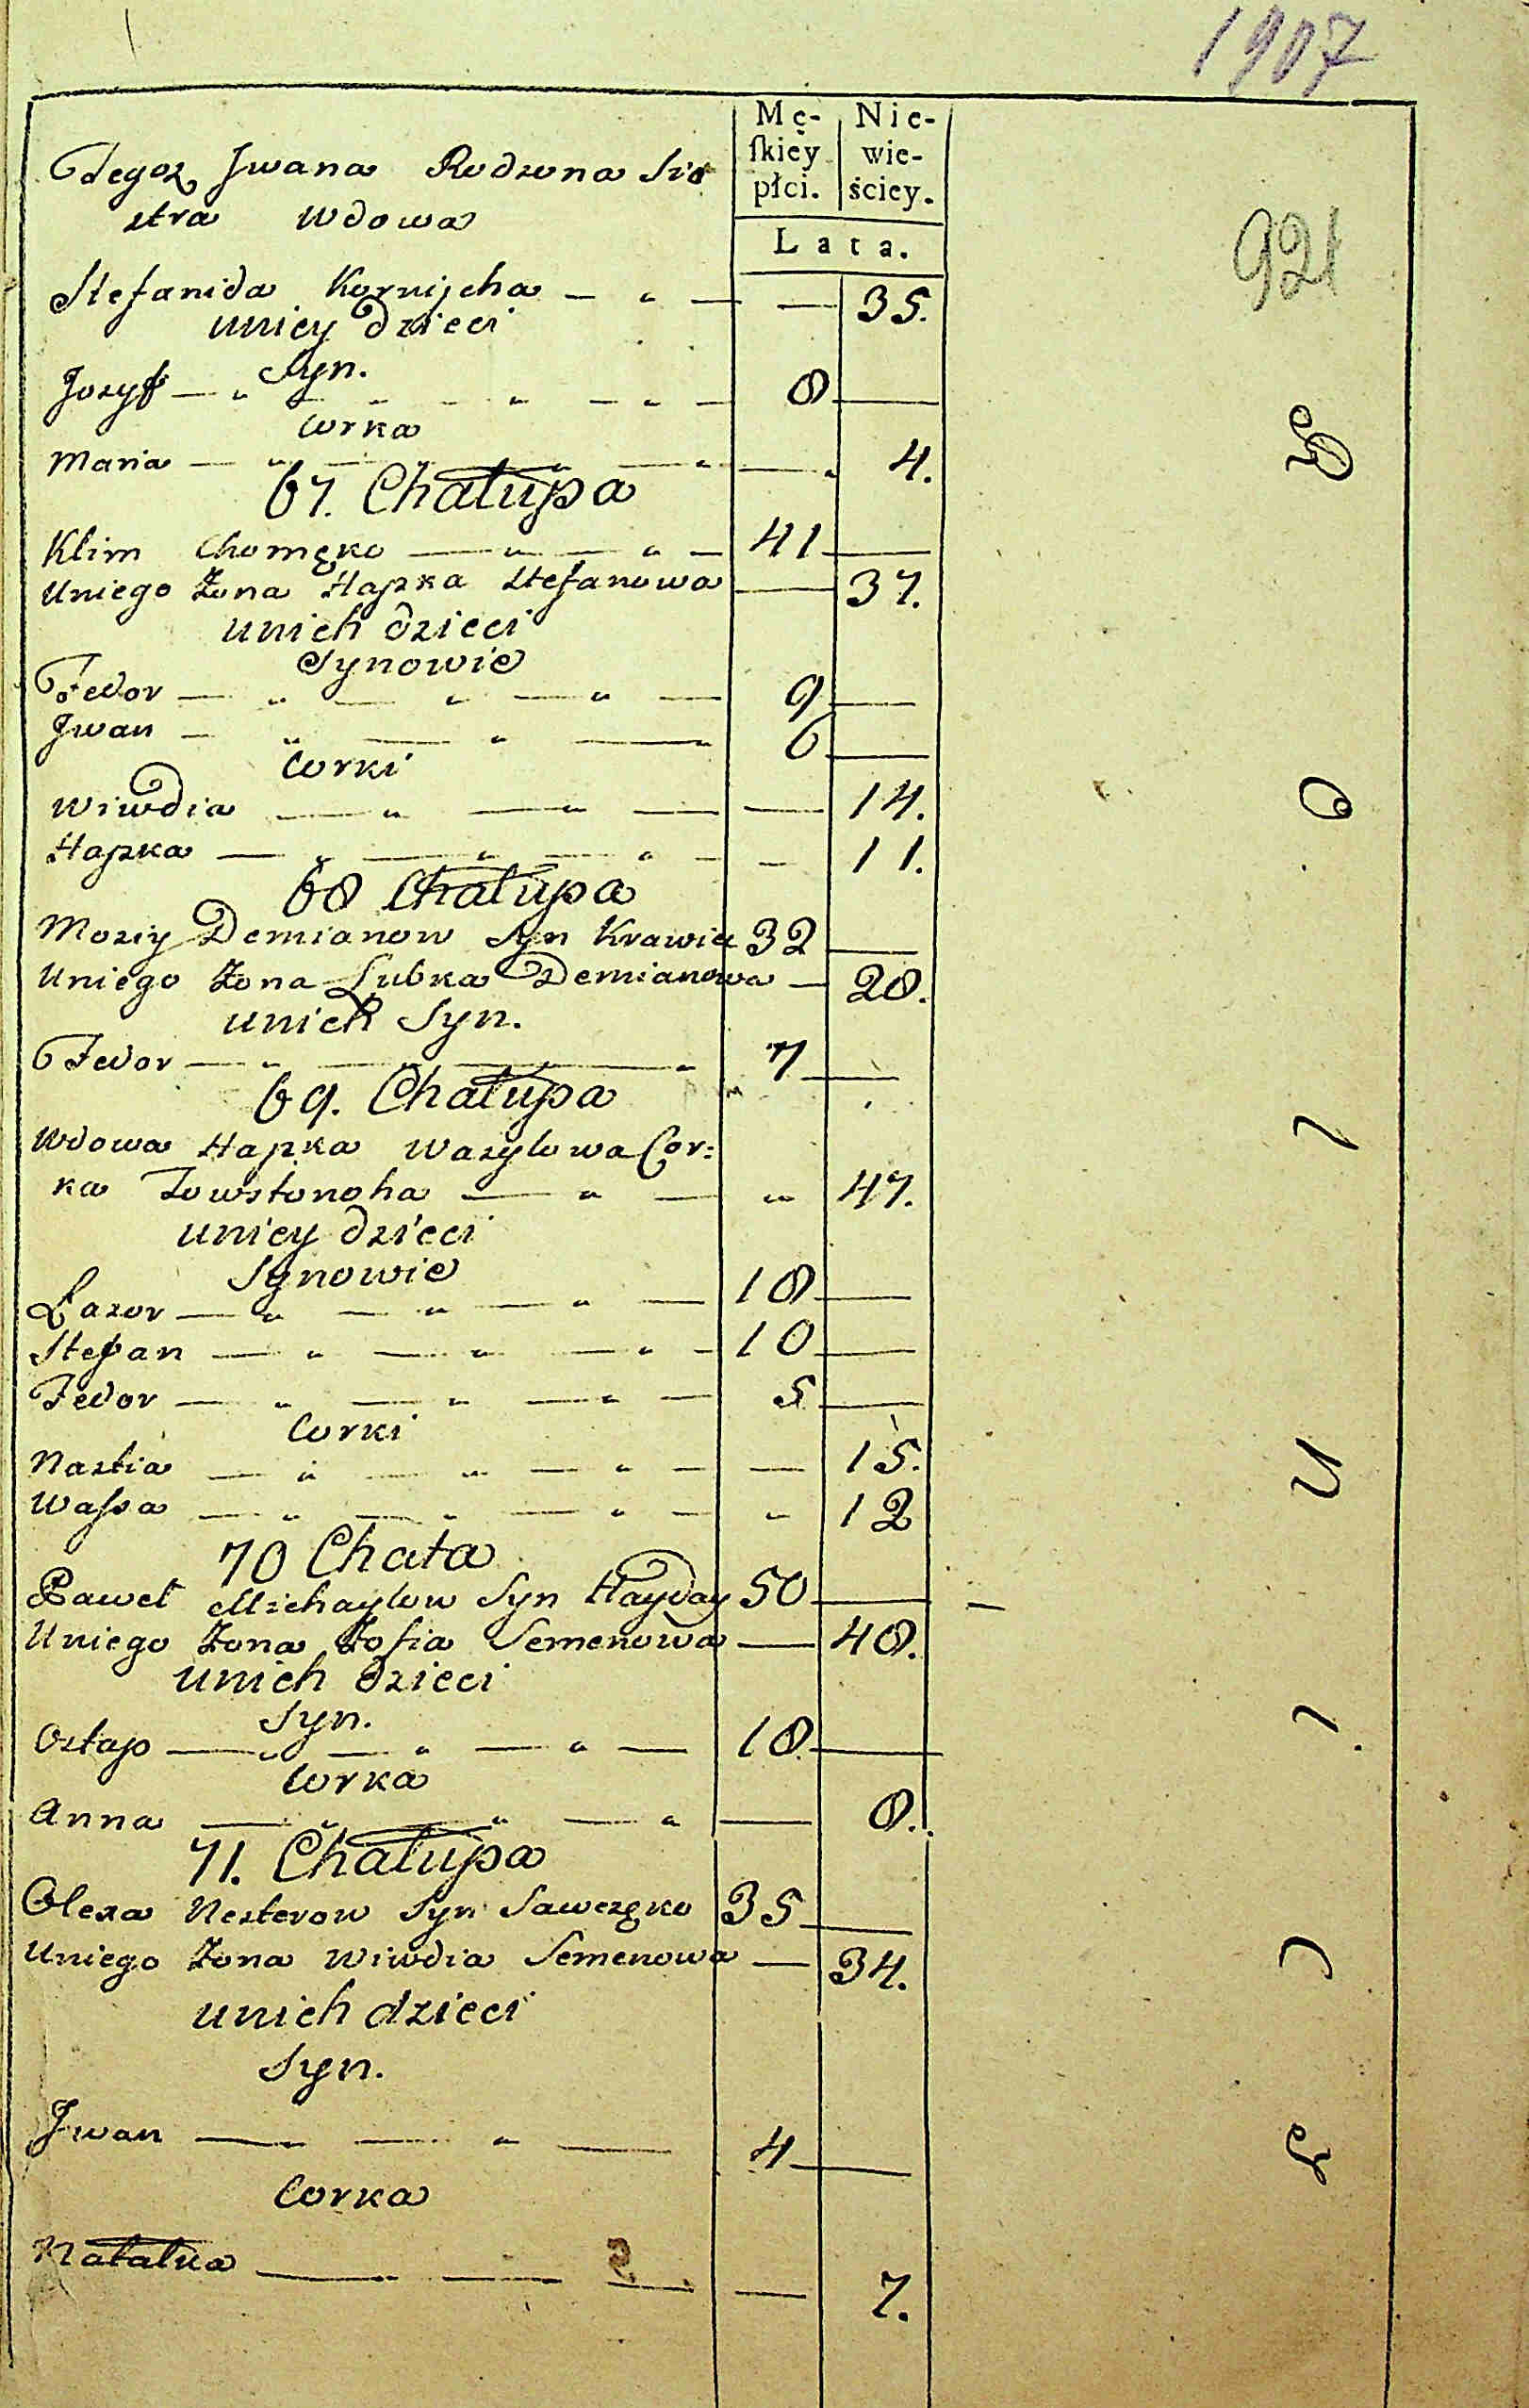 1907
Mę- Nie-
ſkiey wie-
płci. ściey.
Lata.
921
Tegoż Jwana Rodzona Sio
stra Wdowa
Stefanida Kornijcha — „ — — 35.
uniey Dzieci
Syn.
Jozyf — „ — „ — „ — „ — 8 —
Corka
Maria — „ — „ — „ — 4.
67. Chałupa
Klim Chomęko — „ — „ — 41 —
Uniego Żona Hapka Stefanowa — 37.
unich dzieci
Synowie
Fedor — „ — „ — „ — 9 —
Jwan — „ — „ — „ 6 —
Corki
Wiwdia — „ — „ — — 14.
Hapka — „ — „ — „ — — 11.
68 Chałupa
Moziy Demianow Syn Krawiec 32 —
Uniego Żona Lubka Demianowa — 28.
unich Syn.
Fedor — „ — „ — „ 7 —
69. Chałupa
Wdowa Hapka Wasylowa Cor:
ka Towstonoha — „ — „ 47.
uniey dzieci
Synowie
Łazor — „ — „ — „ — 18 —
Stefan — „ — „ — „ — 10 —
Fedor — „ — „ — „ — 5 —
Corki
Nastia — „ — „ — „ — — 15.
Wassa — „ — „ — „ — „ 12
70 Chata
Paweł Michayłow Syn Hayday 50 — —
Uniego Żona Zofia Semenowa — 48.
unich dzieci
Syn.
Ostap — „ — „ — „ — 18 —
Corka
Anna — „ — „ — „ — 8.
71. Chałupa
Olexa Nesterow Syn Sawezęko 35 —
Uniego Żona Wiwdia Semenowa — 34.
unich dzieci
Syn.
Jwan — „ — „ — 4 —
Corka
Natałka — „ — — — 7.